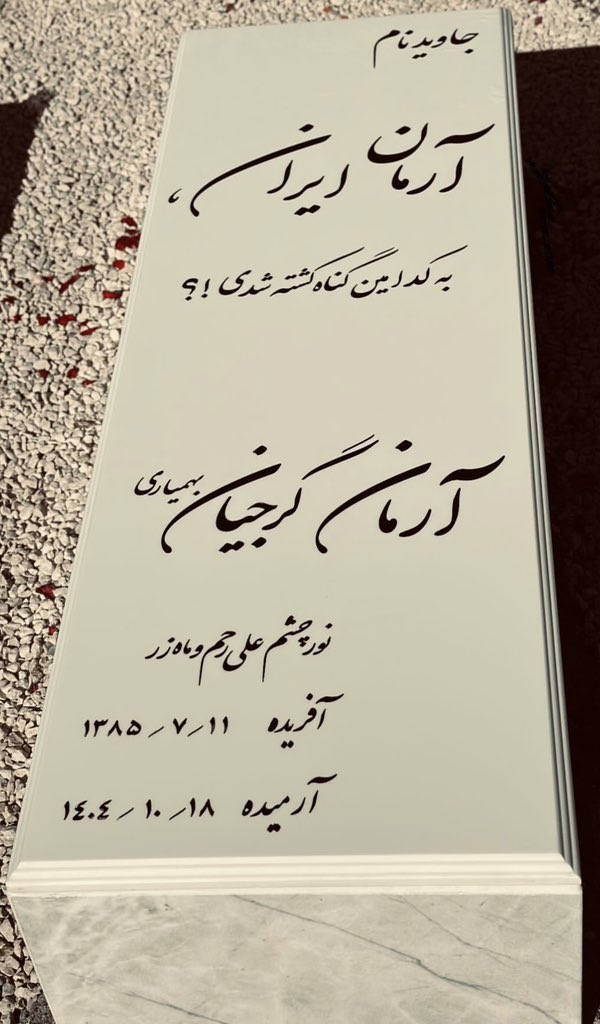 جاوید نام
آرمان ایران،
به کدامین گناه کشته شدی !؟
آرمان گرجیان بهمیاری
نور چشم علی رحم و ماه زر
آفریده ۱۳۸۵/۷/۱۱
آرمیده ۱۴۰۴/۱۰/۱۸